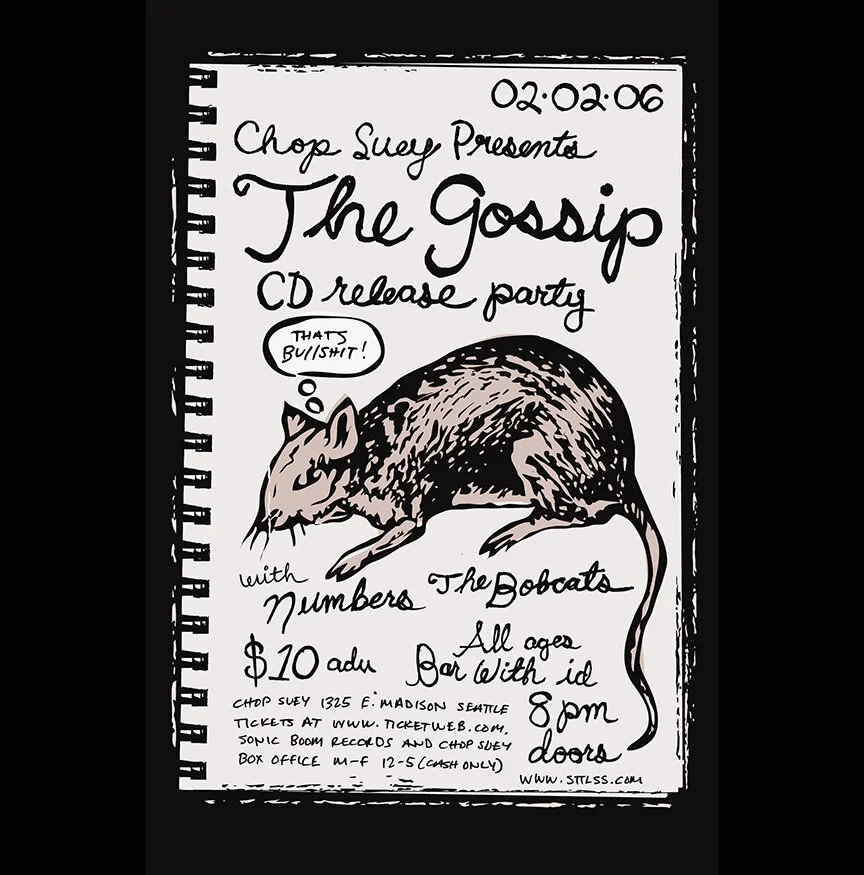 02·02·06
Chop Suey Presents
The Gossip
CD release party
THATS
BUllSHIT!
with
Numbers The Bobcats
$10 adv
All ages
Bar With id
8pm
doors
CHOP SUEY 1325 E. MADISON SEATTLE
TICKETS AT WWW.TICKETWEB.COM,
SONIC BOOM RECORDS AND CHOP SUEY
BOX OFFICE M-F 12-5 (CASH ONLY)
WWW.STLSS.COM